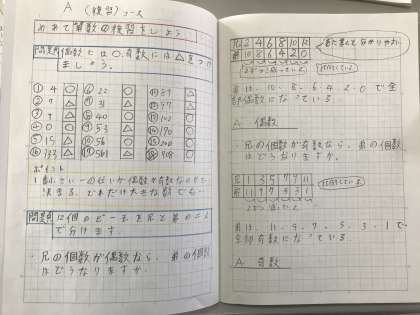 A (復習)コース
めあて 算数の復習をしよう
問題 偶数には○、奇数には△をつけ
ましょう。
① 4 ○
② 7 △
③ 31 △
④ 0 ○
⑤ 15 △
⑥ 22 ○
⑦ 40 ○
⑧ 53 △
⑨ 56 ○
⑪ 89 △
⑫ 97 △
⑬ 102 ○
⑭ 170 ○
⑮ 200 ○
ポイント
一の位が偶数か奇数なのかで
決まる。どれだけ大きな数でも。
問題 12個のビー玉を兄と弟の2人
で分けます。
・兄の個数が偶数なら、弟の個数
はどうなりますか。
兄 2 4 6 8 10 12
弟 10 8 6 4 2 0
弟は、10、8、6、4、2、0で全
部偶数になっている。
A 偶数
・兄の個数が奇数なら、弟の個数
はどうなりますか。
兄 1 3 5 7 9 11
弟 11 9 7 5 3 1
弟は、11、9、7、5、3、1で
全部奇数になっている。
A 奇数